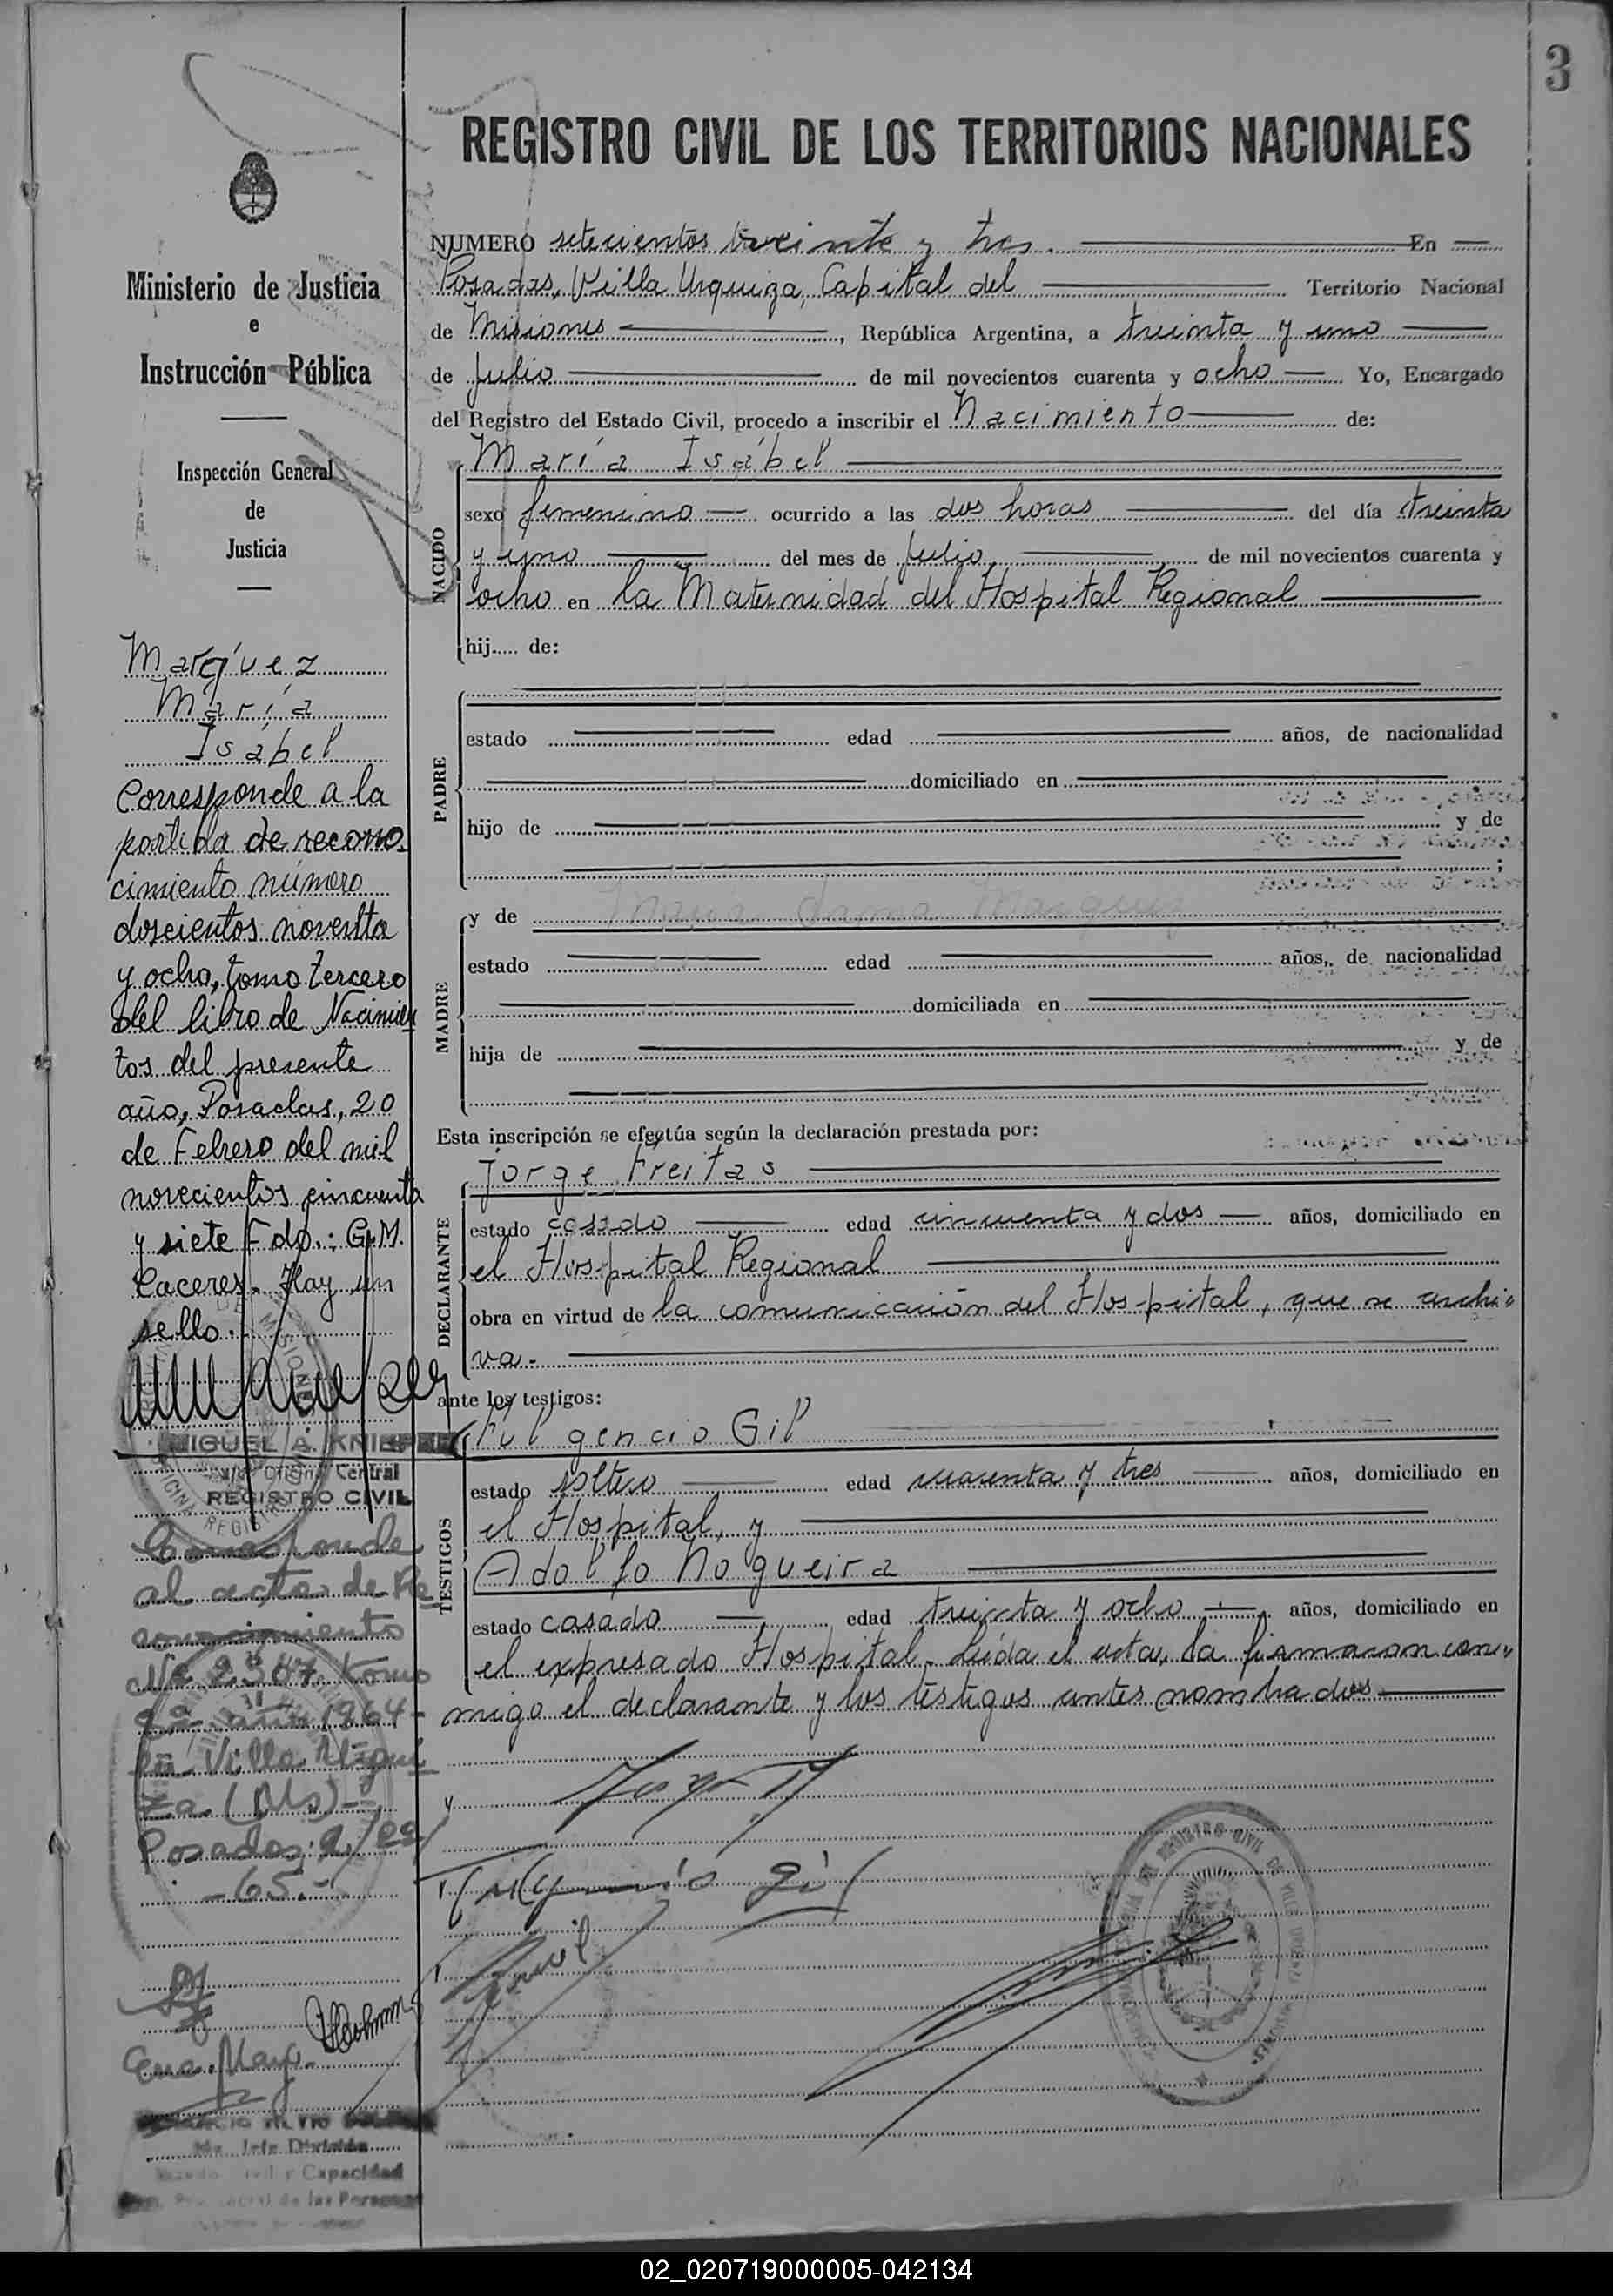 3
REGISTRO CIVIL DE LOS TERRITORIOS NACIONALES
Ministerio de Justicia
e
Instrucción Pública
Inspección General
de
Justicia
Marquez
María
Isabel
Corresponde a la
partida de recono
cimiento número
doscientos noventa
y ocho, tomo tercero
del libro de Nacimien
tos del presente
año, Posadas, 20
de Febrero del mil
novecientos cincuenta
y siete Fdo.: G.M.
Caceres. Hay un
sello.
MIGUEL A.
Oficina Central
REGISTRO CIVIL
Corresponde
al acta de Re
conocimiento
Nº 2367 tomo
año 1964-
en Villa Urqui
za (Ms)-
Posadas,
-65.-
NUMERO setecientos veinte y tres. En
Posadas, Villa Urquiza, Capital del Territorio Nacional
de Misiones, República Argentina, a treinta y uno
de Julio de mil novecientos cuarenta y ocho Yo, Encargado
del Registro del Estado Civil, procedo a inscribir el Nacimiento de:
NACIDO
María Isabel
sexo femenino ocurrido a las dos horas del día treinta
y uno del mes de Julio de mil novecientos cuarenta y
ocho en la Maternidad del Hospital Regional
hij..... de:
PADRE
estado edad años, de nacionalidad
domiciliado en
hijo de y de
;
MADRE
y de Maria Marquez
estado edad años, de nacionalidad
domiciliada en
hija de y de
Esta inscripción se efectúa según la declaración prestada por:
DECLARANTE
Jorge Freitas
estado casado edad cincuenta y dos años, domiciliado en
el Hospital Regional
obra en virtud de la comunicación del Hospital, que se archi=
va.-
ante los testigos:
TESTIGOS
Fulgencio Gil
estado soltero edad cuarenta y tres años, domiciliado en
el Hospital, y
Adolfo Nogueira
estado casado edad treinta y ocho años, domiciliado en
el expresado Hospital. Leída el acta, la firmaron con=
migo el declarante y los testigos antes nombrados.
Fulgencio Gil
Jefe División
Capacidad
de las Personas
02_020719000005-042134